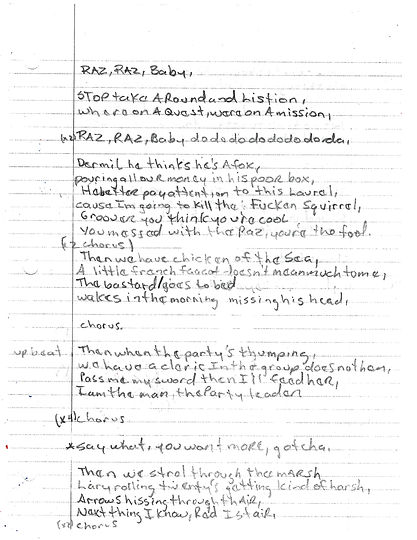 RAZ, RAZ, Baby,
STOP take A Round and listion,
where on A Quest, were on A mission,
(x2) RAZ, RAZ, Baby dododododododada,
Dermil he thinks he's A fox,
pouring all our money in his poor box,
He better pay attention to this Laurel,
cause Im going to kill the Fucken Squirrel,
Groover you think you're cool
You messed with the Raz, you're the fool.
(x2 chorus)
Then we have chicken of the Sea,
A little french faggot doesn't mean much to me,
The bastard goes to bed
wakes in the morning missing his head,
chorus.
up beat Then when the party's thumping,
we have a cleric In the group does nothen,
Pass me my sword then I'll feed her,
I am the man, the Party leader
(x4) chorus
*say what, you want more, gotcha.
Then we strol through the mARSh
Lary rolling twenty's getting kind of harsh,
Arrows hissing through th AiR,
Next thing I know, Rod I stair,
(x2) chorus